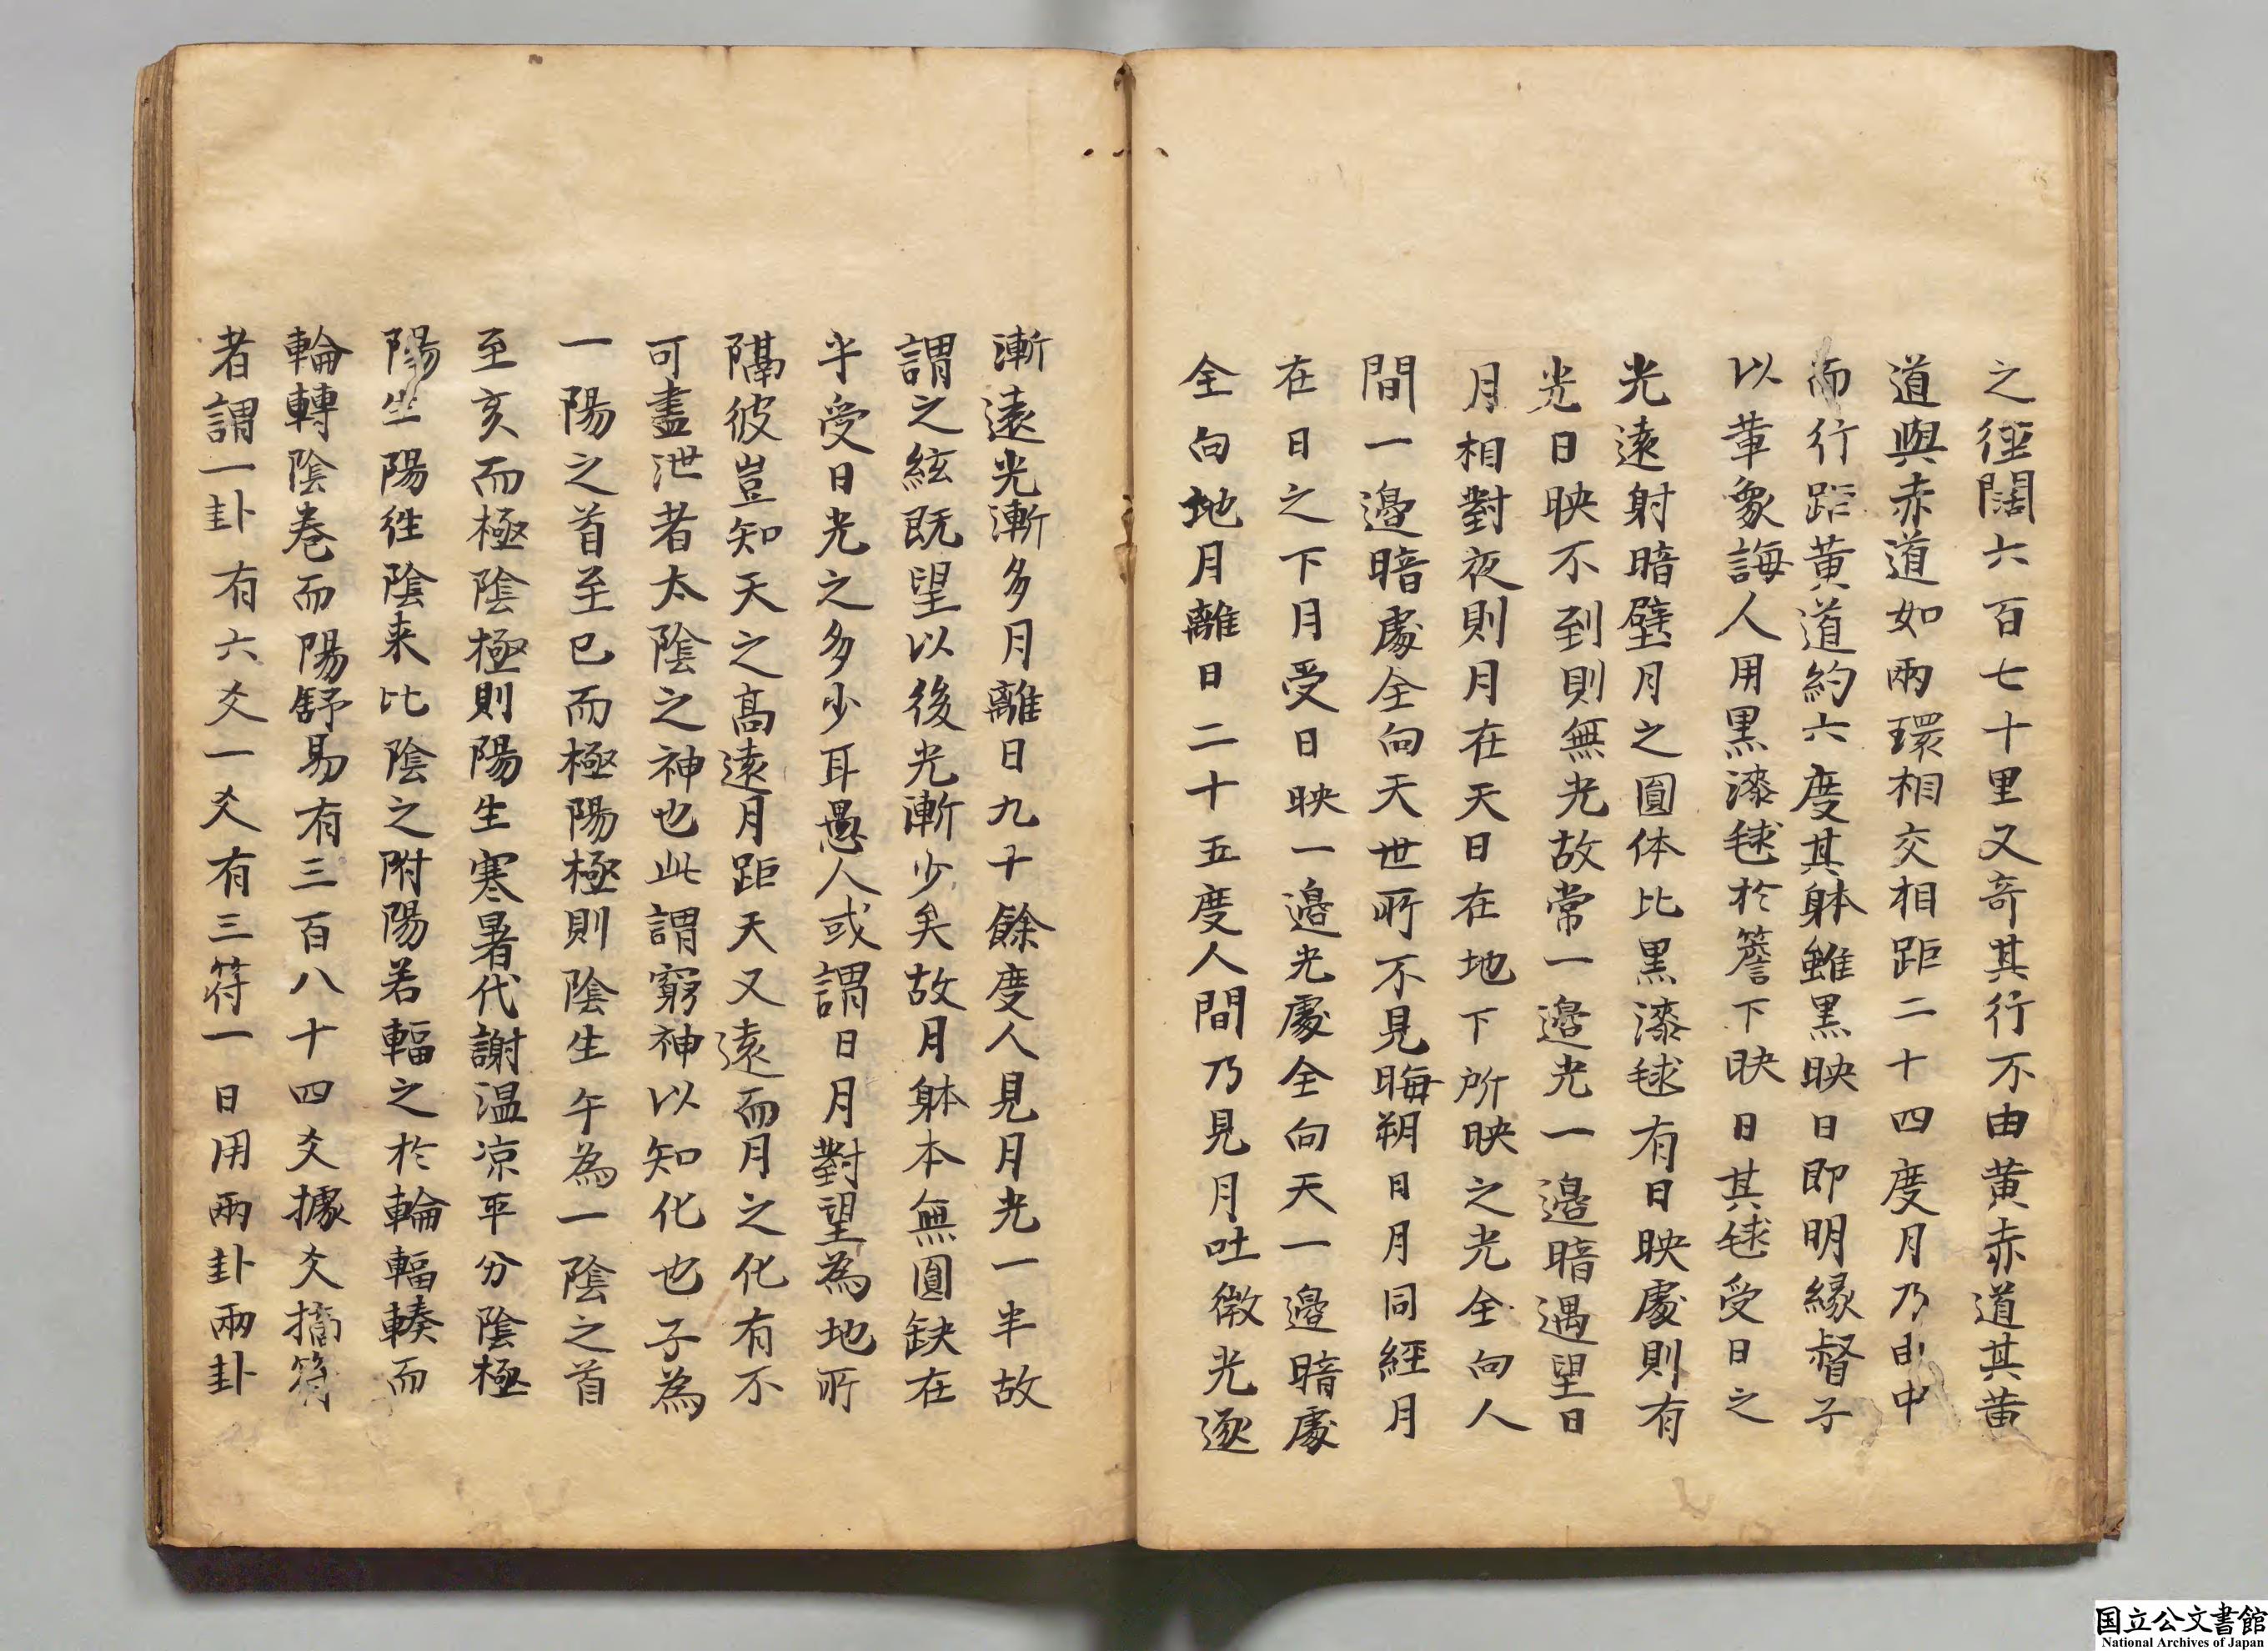 之徑闊六百七十里又奇其行不由黄赤道其黄
道與赤道如兩環相交相距二十四度月乃由中
而行距黄道約六度其躰雖黒映日即明縁督子
以管象誨人用黒漆毬於簷下映日其毬受日之
光遠射暗壁月之圓体比黒漆毬有日映處則有
光日映不到則無光故常一邉光一邉暗遇望日
月相對夜則月在天日在地下所映之光全向人
間一邉暗處全向天世所不見晦朔日月同經月
在日之下月受日映一邉光處全向天一邉暗處
全向地月離日二十五度人間乃見月吐微光逐
漸遠光漸多月離日九十餘度人見月光一半故
謂之絃既望以後光漸少矣故月躰本無圓缺在
乎受日光之多少耳愚人或謂日月對望為地所
隔彼豈知天之高遠月距天又遠而月之化有不
可盡泄者太陰之神也此謂窮神以知化也子為
一陽之首至巳而極陽極則陰生午為一陰之首
至亥而極陰極則陽生寒暑代謝温凉平分陰極
陽生陽徃陰来比陰之附陽若輻之於輪輻輳而
輪轉陰巻而陽舒易有三百八十四爻據爻摘符
者謂一卦有六爻一爻有三符一日用兩卦兩卦
国立公文書館
National Archives of Japan